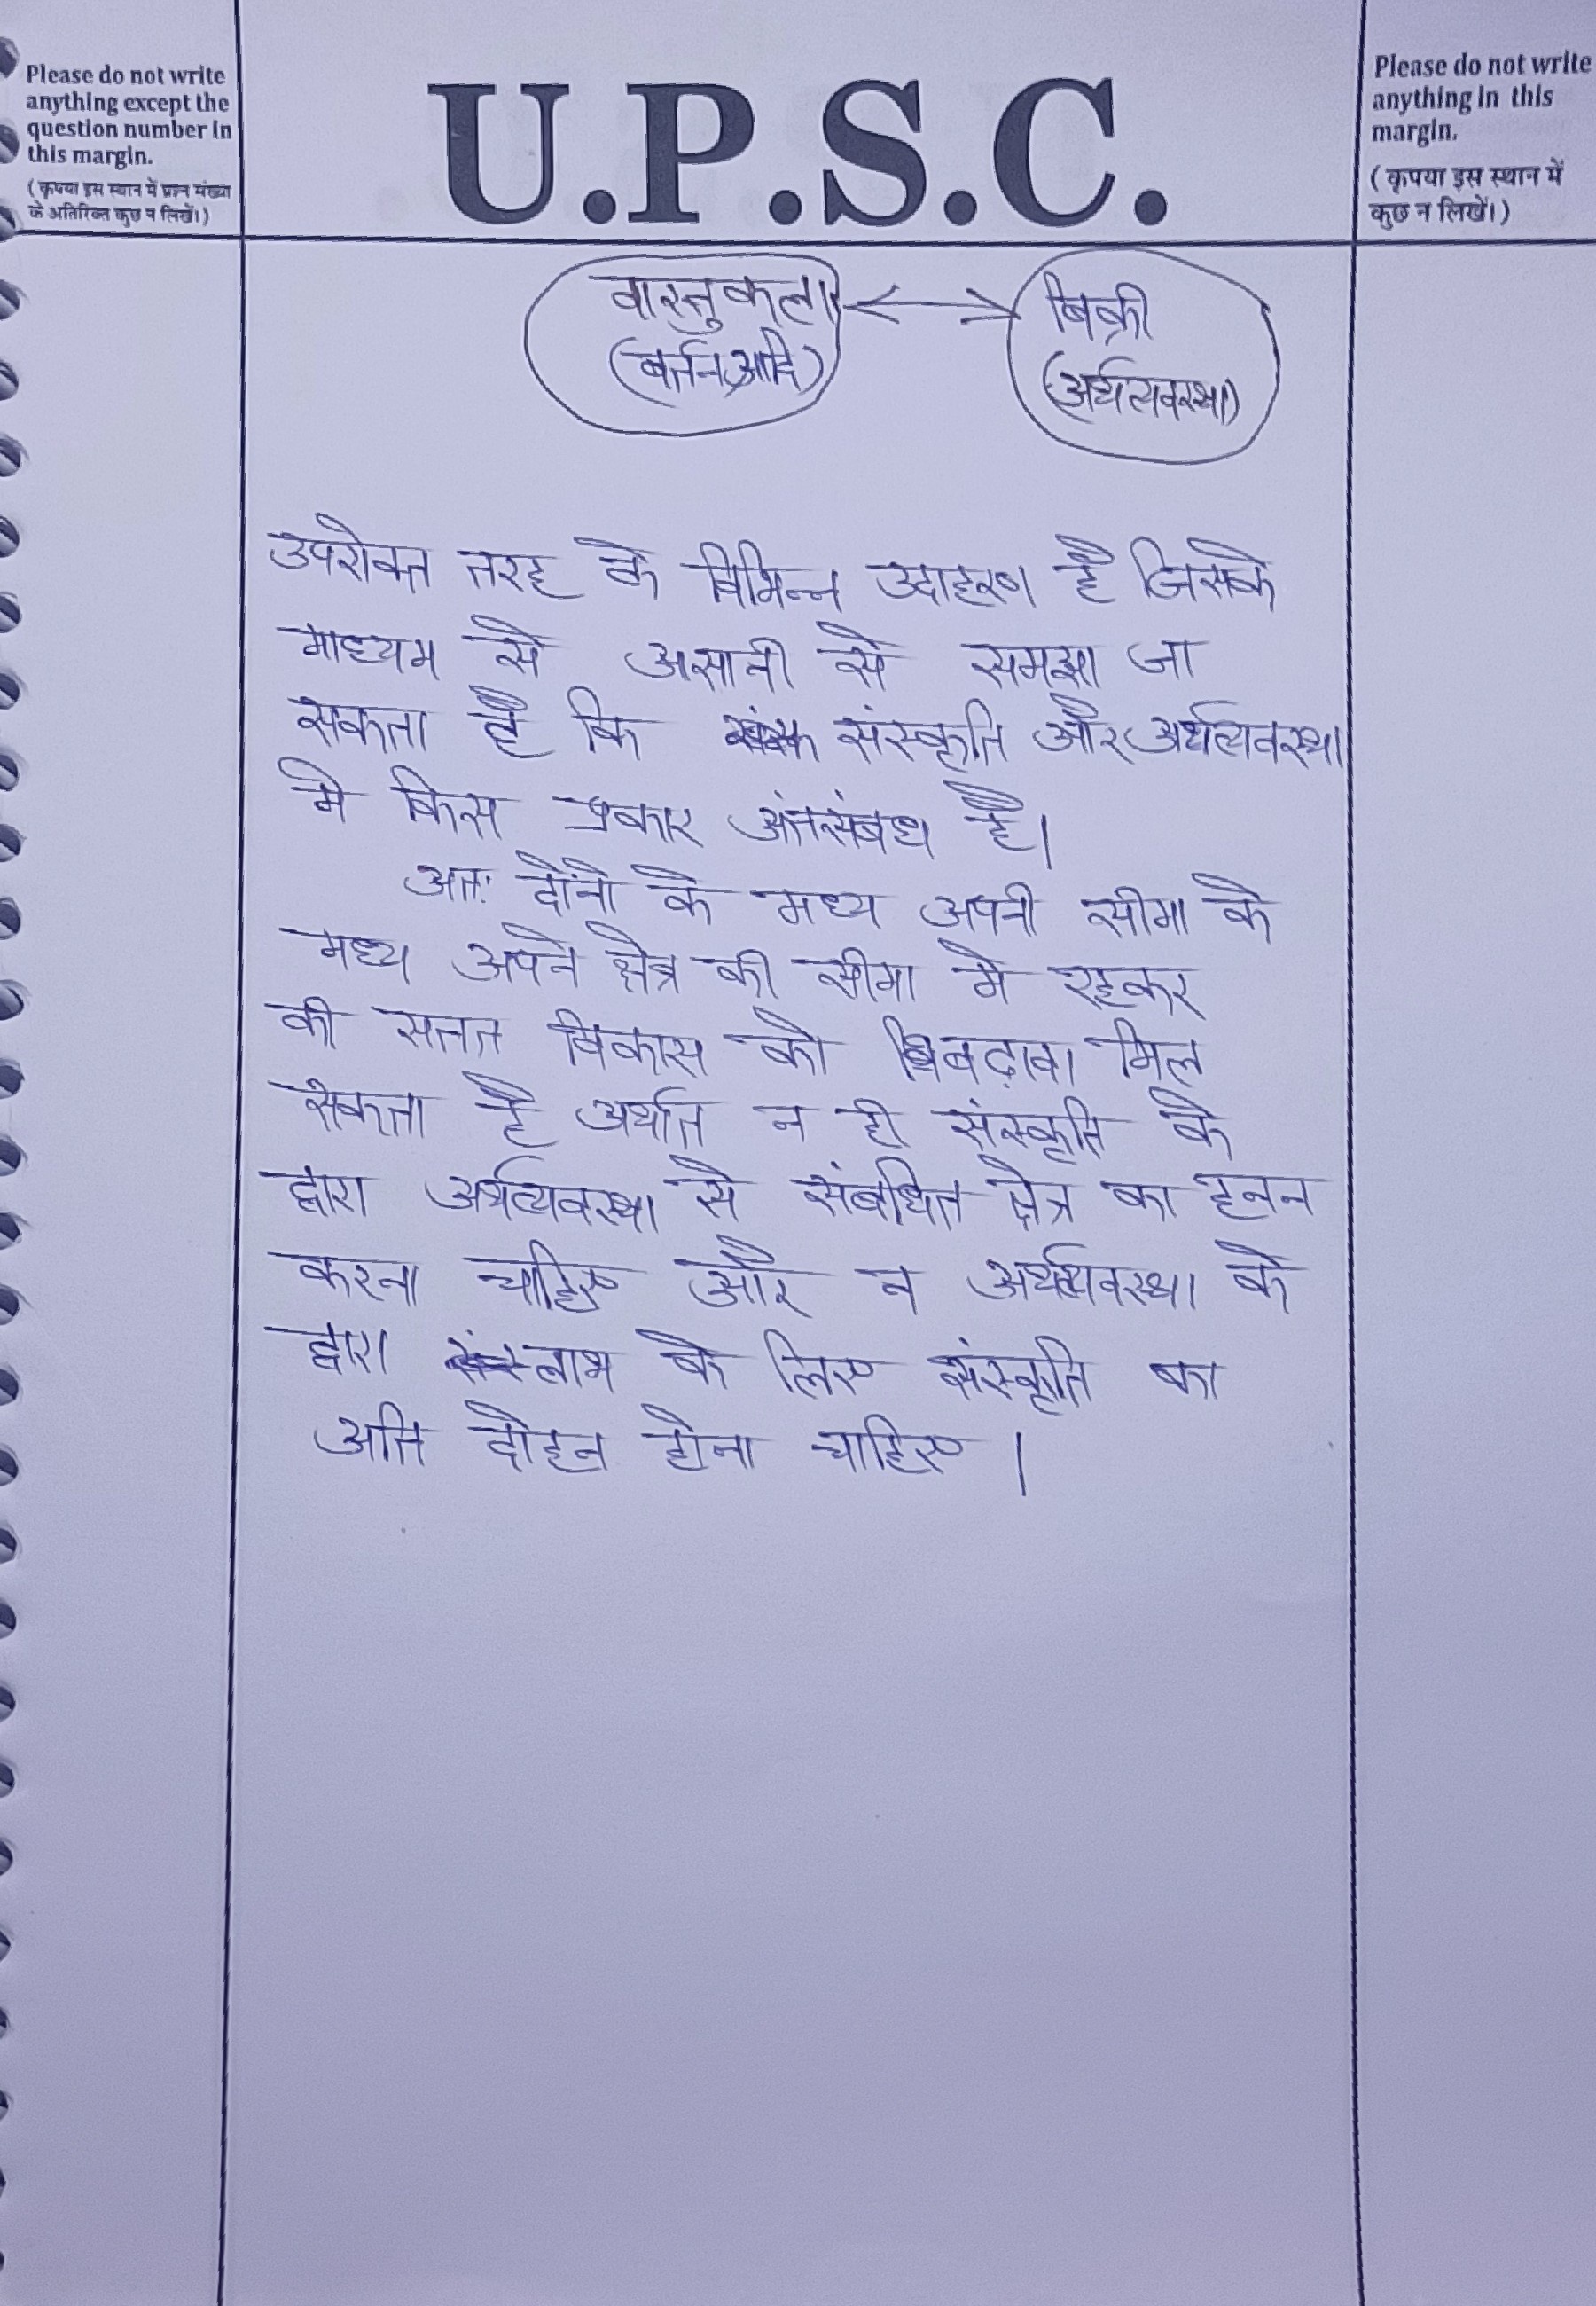 Please do not write
anything except the
question number in
this margin.
(कृपया इस स्थान में प्रश्न संख्या
के अतिरिक्त कुछ न लिखें।)
U.P.S.C.
Please do not write
anything in this
margin.
(कृपया इस स्थान में
कुछ न लिखें।)
वास्तुकला
(बर्तन आदि)
बिक्री
(अर्थव्यवस्था)
उपरोक्त तरह के विभिन्न उदाहरण है जिसके
माध्यम से असानी से समझा जा
सकता है कि संस्कृति और अर्थव्यवस्था
मे किस प्रकार अंतसंबंध है।
अतः दोंनो के मध्य अपनी सीमा के
मध्य अपने क्षेत्र की सीमा मे रहकर
की सतत विकास को बढ़ावा मिल
सकता है अर्थात न ही संस्कृति के
द्वारा अर्थव्यवस्था से संबंधित क्षेत्र का हनन
करना चाहिए और न अर्थव्यवस्था के
द्वारा लाभ के लिए संस्कृति का
अति दोहन होना चाहिए।